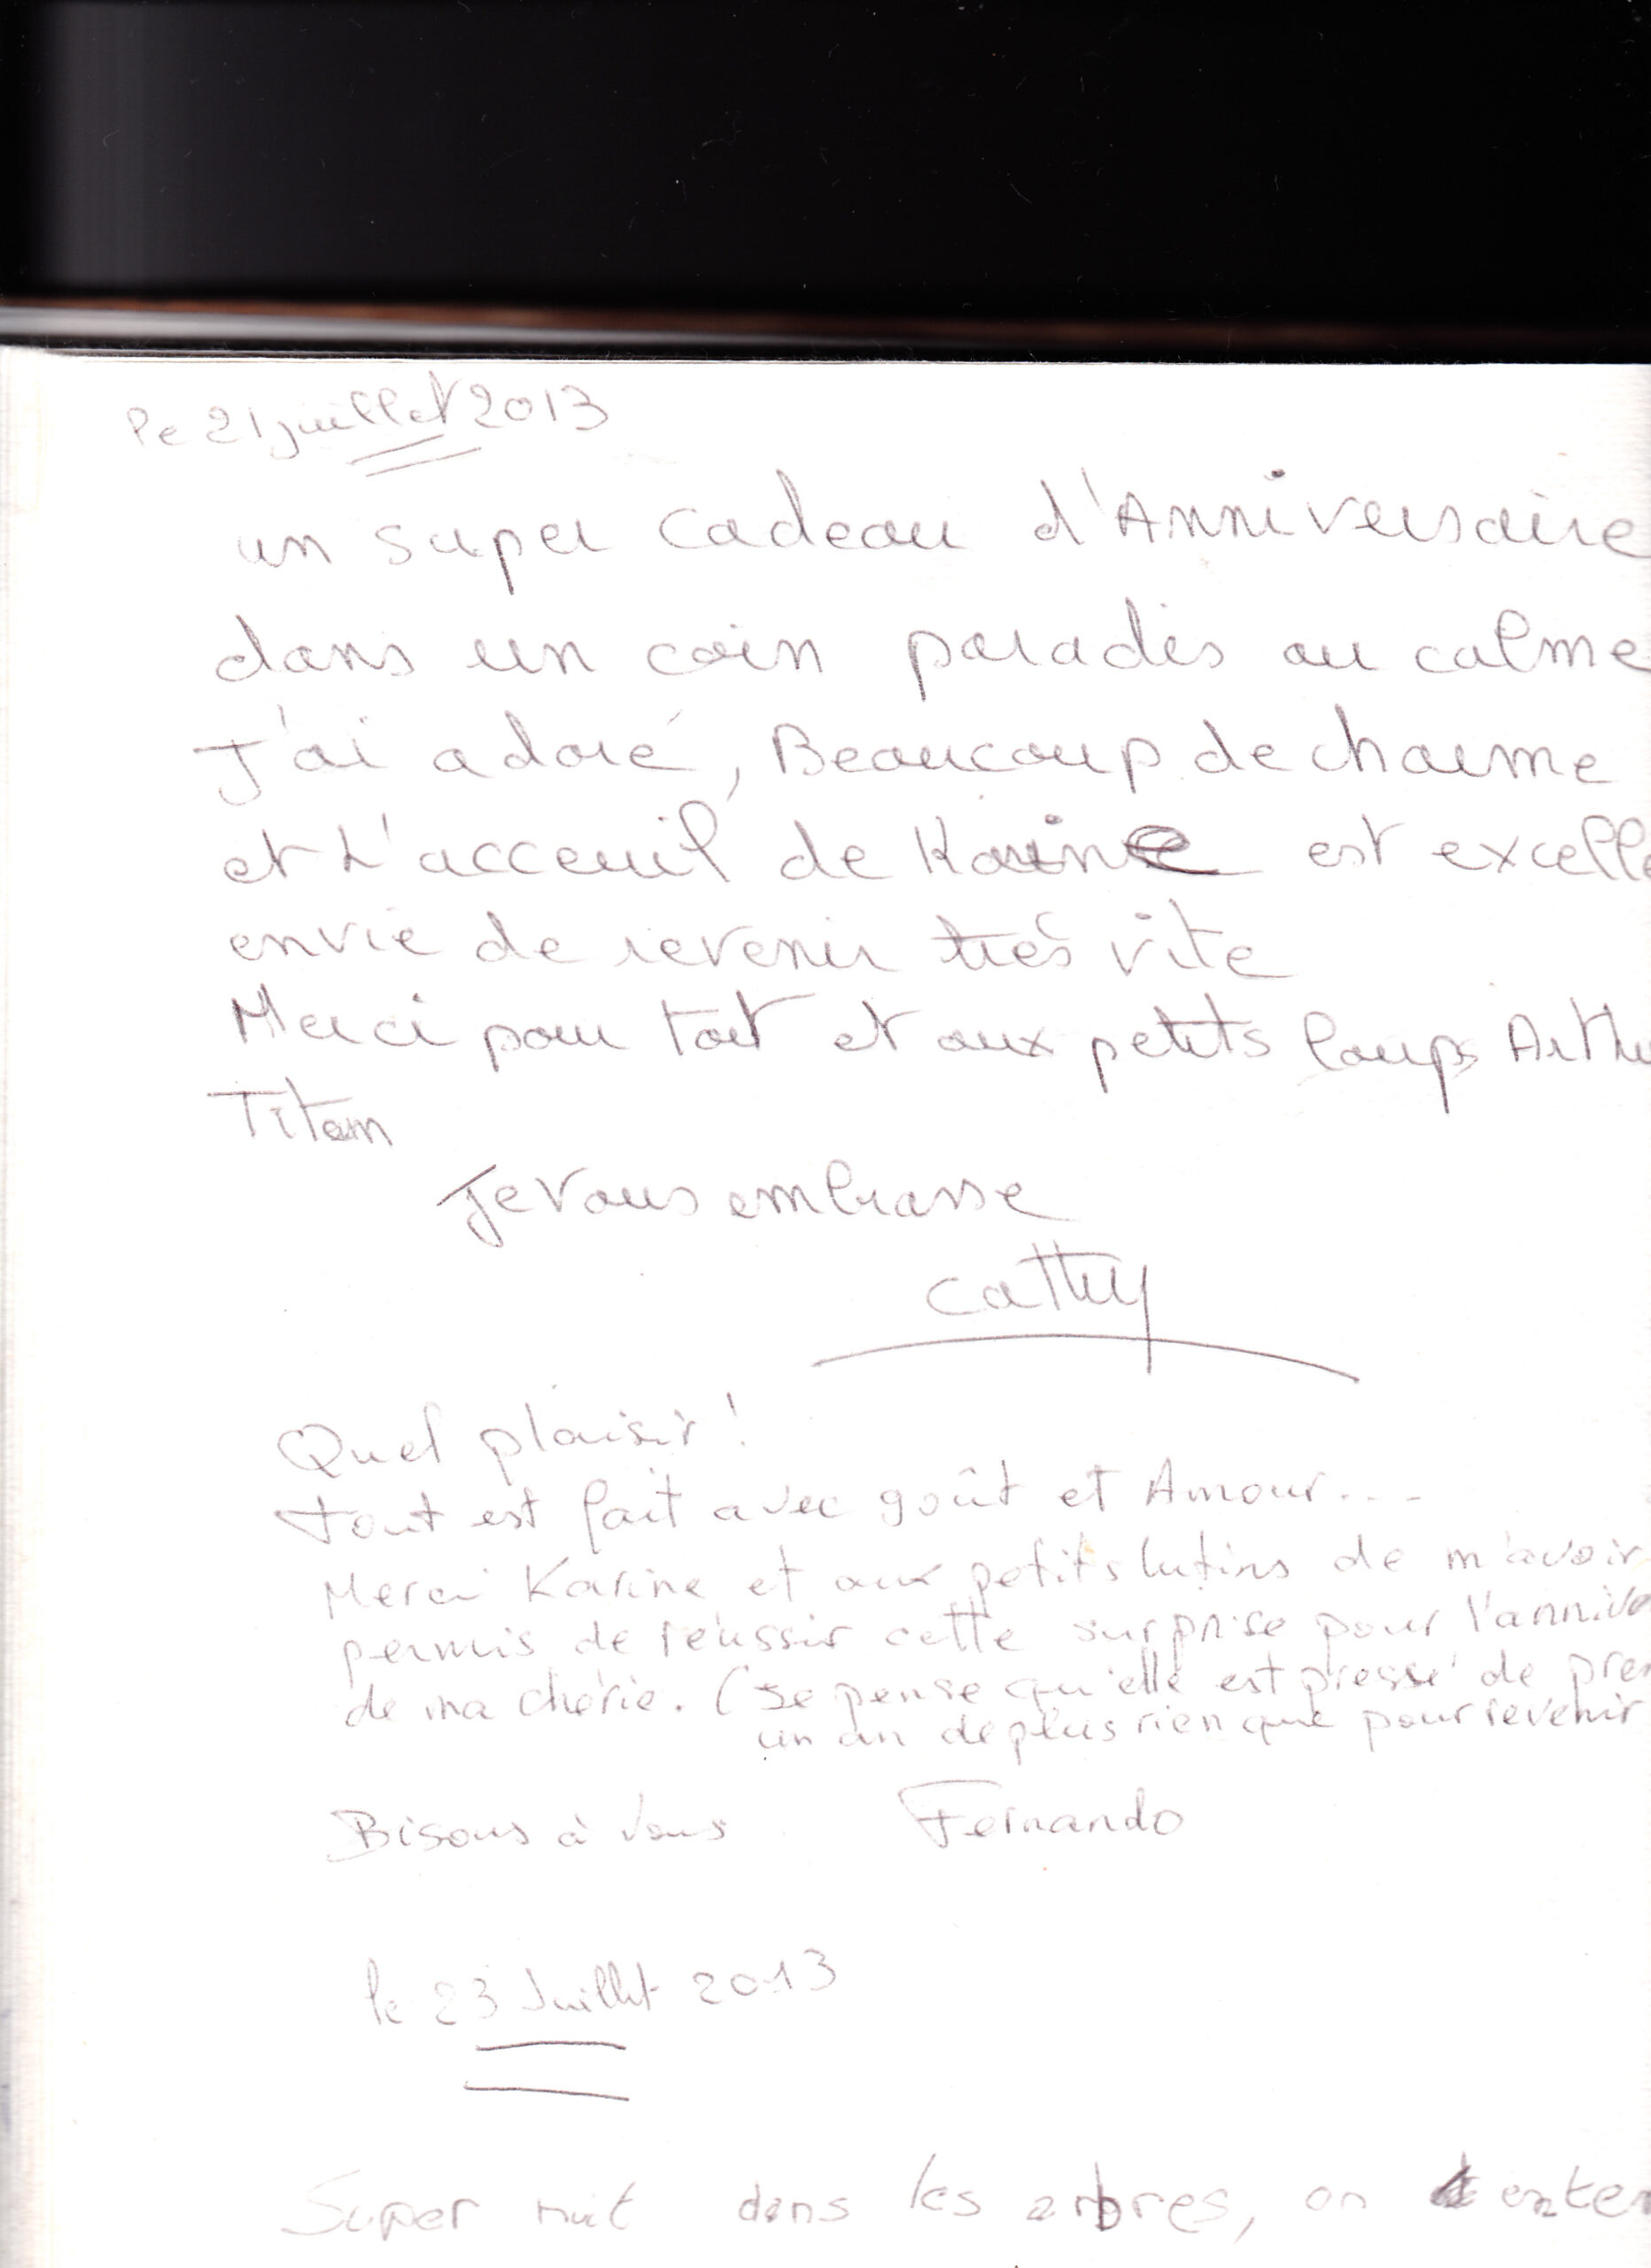 le 21 juillet 2013
un super cadeau d'Anniversaire
dans un coin paradis au calme
J'ai adoré, Beaucoup de charme
et L'acceuil de Karine est excelle
envie de revenir très vite
Merci pour tout et aux petits loups Arthu
Titom
Je vous embrasse
Cathy
Quel plaisir !
tout est fait avec goût et Amour...
Merci Karine et aux petits lutins de m'avoir
permis de réussir cette surprise pour l'annive
de ma chérie. (Je pense qu'elle est pressé de pren
un an de plus rien que pour revenir
Bisous à vous Fernando
le 23 Juillet 2013
Super nuit dans les arbres, on enten